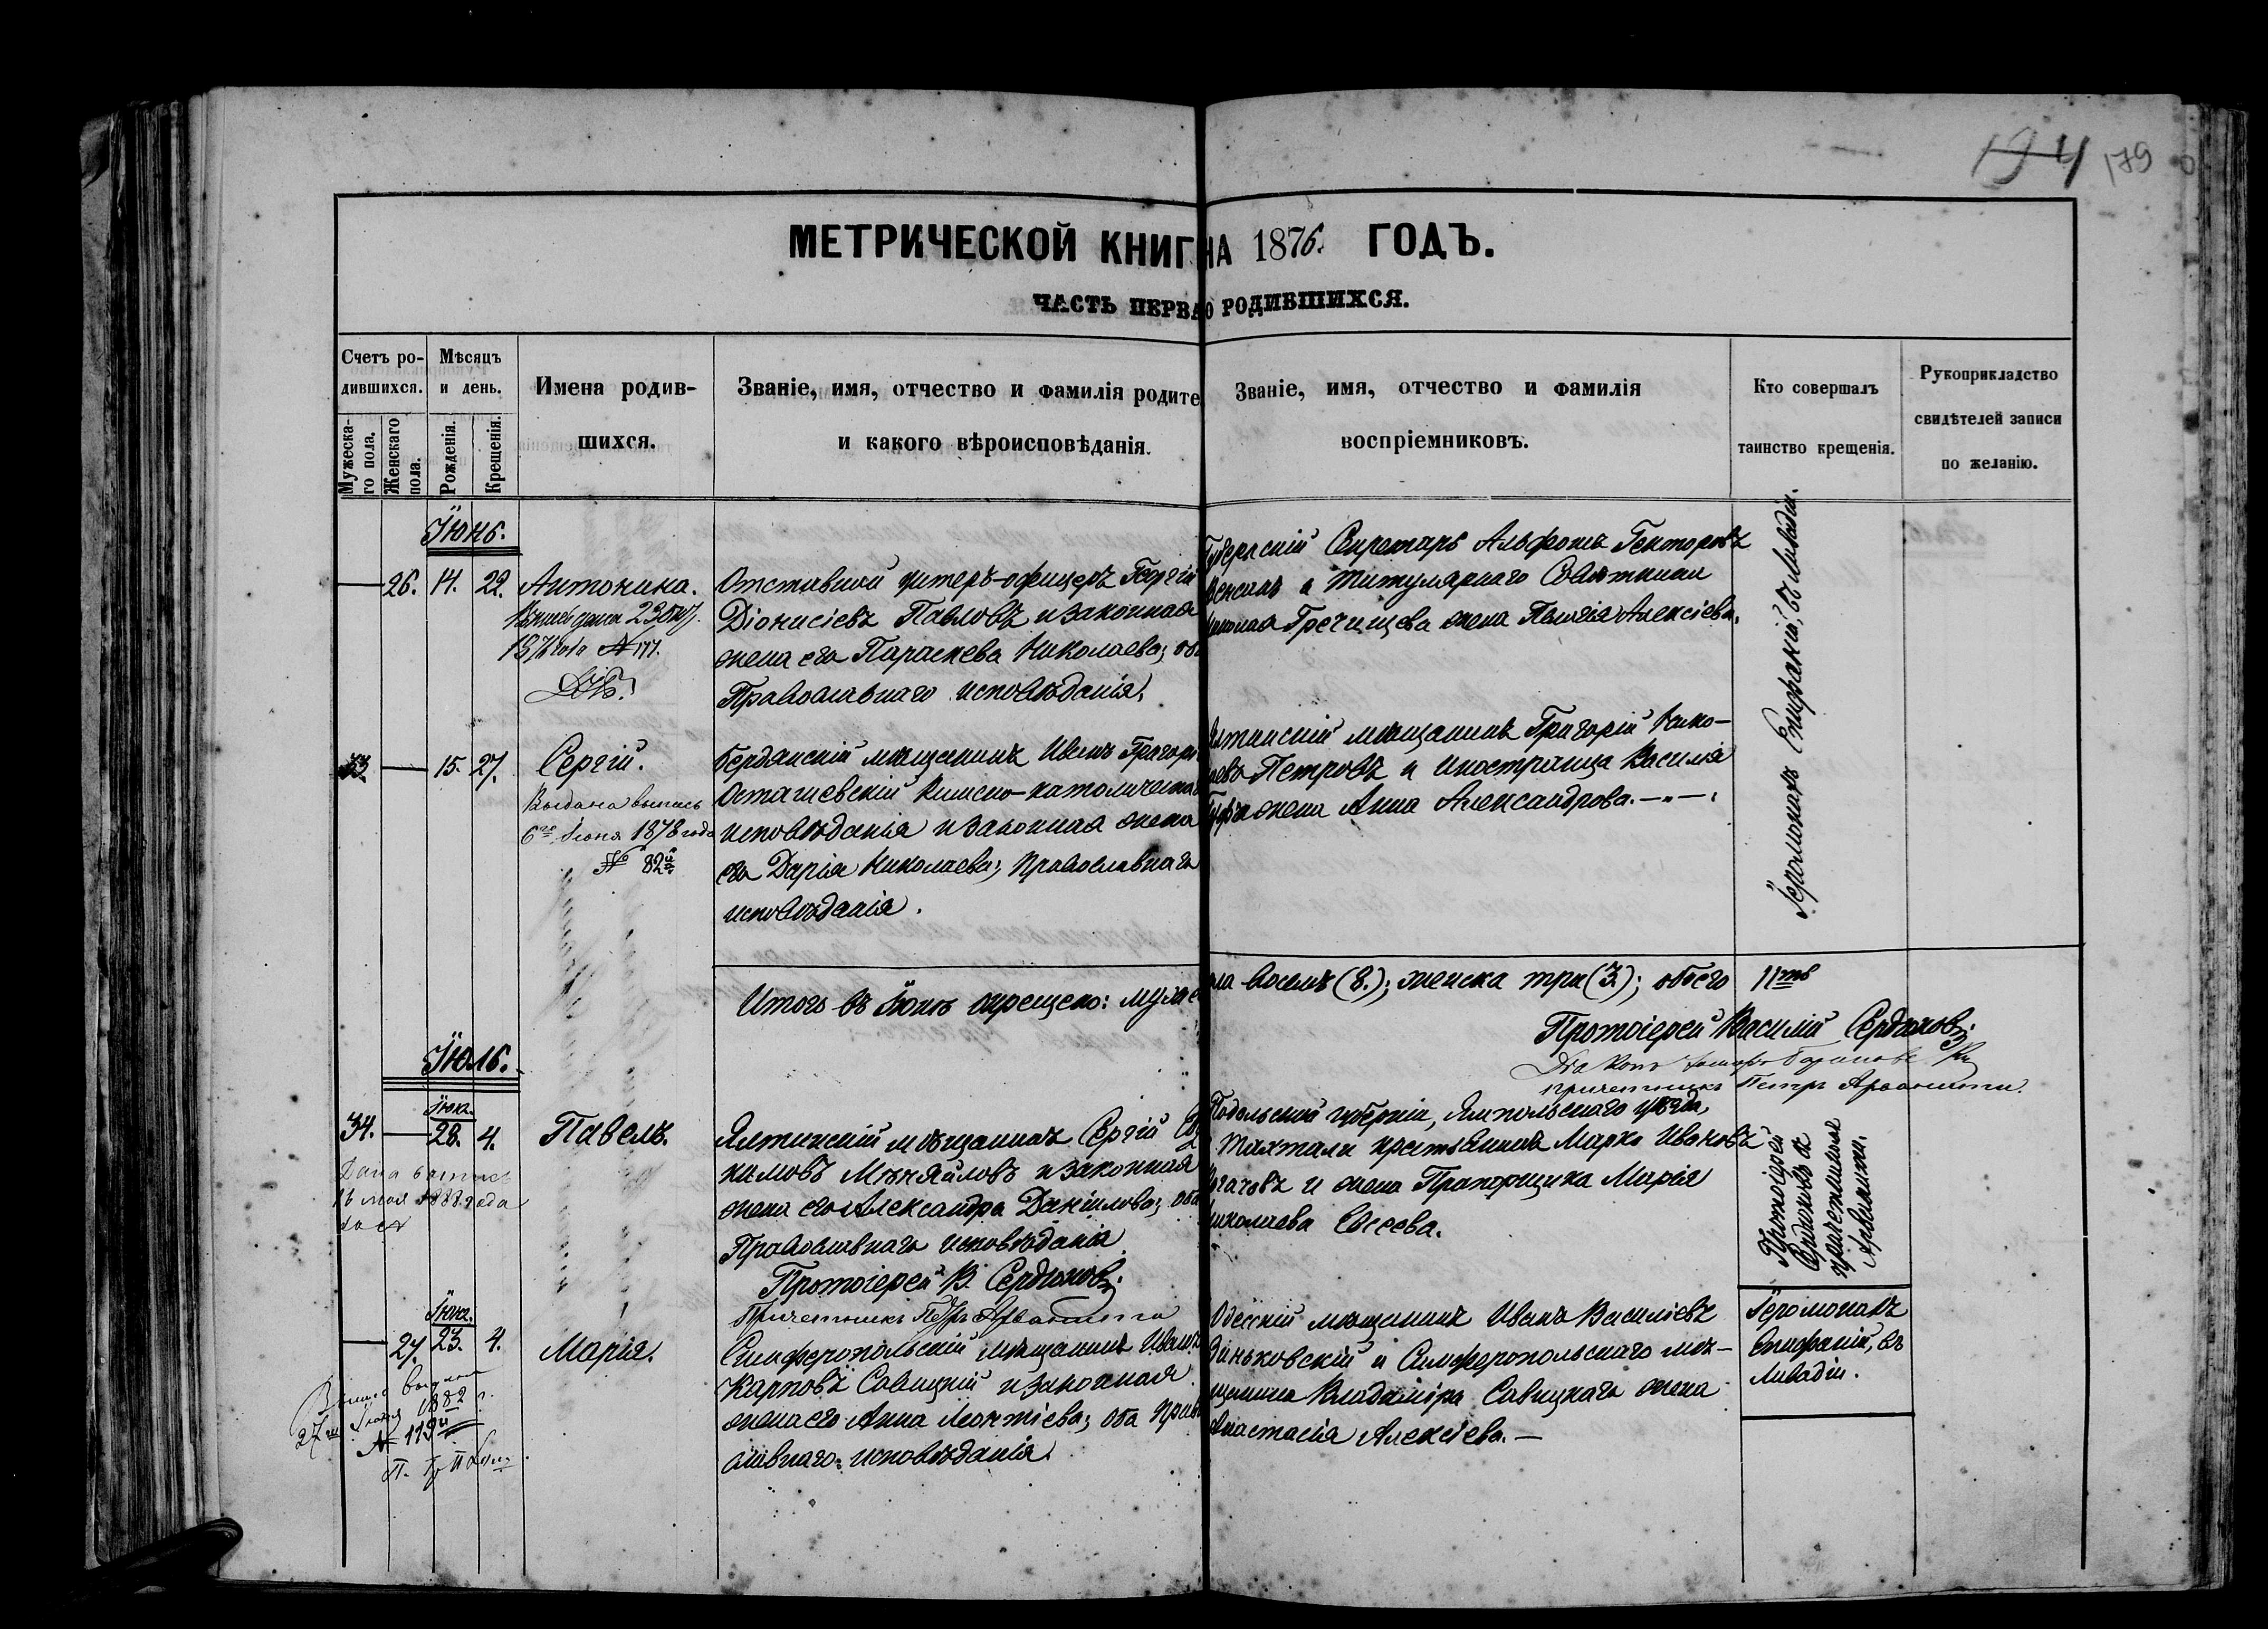 179
МЕТРИЧЕСКОЙ КНИГ НА 1876. ГОДЪ.
ЧАСТЬ ПЕРВА О РОДИВШИХСЯ.
Счетъ ро-
дившихся.
Мужеска-
го пола.
Женскаго
пола.
Мѣсяцъ
и день.
Рожденія.
Крещенія.
Имена родив-
шихся.
Званіе, имя, отчество и фамилія родите
и какого вѣроисповѣданія.
Званіе, имя, отчество и фамилія
воспріемниковъ.
Кто совершалъ
таинство крещенія.
Рукоприкладство
свидѣтелей записи
по желанію.
Іюнь.
26. 14. 22. Антонина.
№ 177.
Отставной унтеръ-офицеръ Георгій
Діонисіевъ Павловъ и законная
жена его Параскева Николаева; оба
Православнаго исповѣданія.
Секретарь Альфонъ Гекторовъ
и Титулярнаго Совѣтника
Гречищева жена Алексіева.
Іеромонахъ Епифаній, въ Ливадіи.
33. 15. 27. Сергій.
Выдана выпись
6го Іюня 1878 года
№ 82й
Бердянскій мѣщанинъ Иванъ Григорь
Осташевскій Римско-католическа
исповѣданія и законная жена
его Дарія Николаева, Православнаго
исповѣданія.
Ялтинскій мѣщанинъ Григорій Нико-
аевъ Петровъ и иностранца Василія
жена Анна Александрова.
Итого въ Іюнѣ окрещено: муже
ла восемь (8.); женска три (3.); обоего 11ть
Протоіерей Василій Сердюковъ.
Діаконъ
причетникъ Петръ Арванитти.
Іюль.
34. Іюн. 28. 4. Павелъ.
Дана выпись
мая 1888 года
Ялтинскій мѣщанинъ Сергій
кимовъ Мѣняйловъ и законная
жена его Александра Даніилова; оба
Православнаго исповѣданія
Протоіерей В. Сердюковъ.
Причетникъ Петръ Арванитти
Подольской губерніи, Ямпольскаго уѣзда,
крестьянинъ Марко Ивановъ
и жена Прапорщика Марія
иколаева Евсеева.
Протоіерей
Сердюковъ съ
причетникомъ
Арванитти.
27. Іюн. 23. 4. Марія.
27го Іюня 1882 г.
№ 119й
Симферопольскій мѣщанинъ Иванъ
Карповъ Савицкій и законная
жена его Анна Леонтіева; оба Прав
славнаго исповѣданія.
Одесскій мѣщанинъ Иванъ Василіевъ
Зіньковскій и Симферопольскаго мѣ-
щанина Владиміра Савицкаго жена
Анастасія Алексіева.—
Іеромонахъ
Епифаній, въ
Ливадіи.